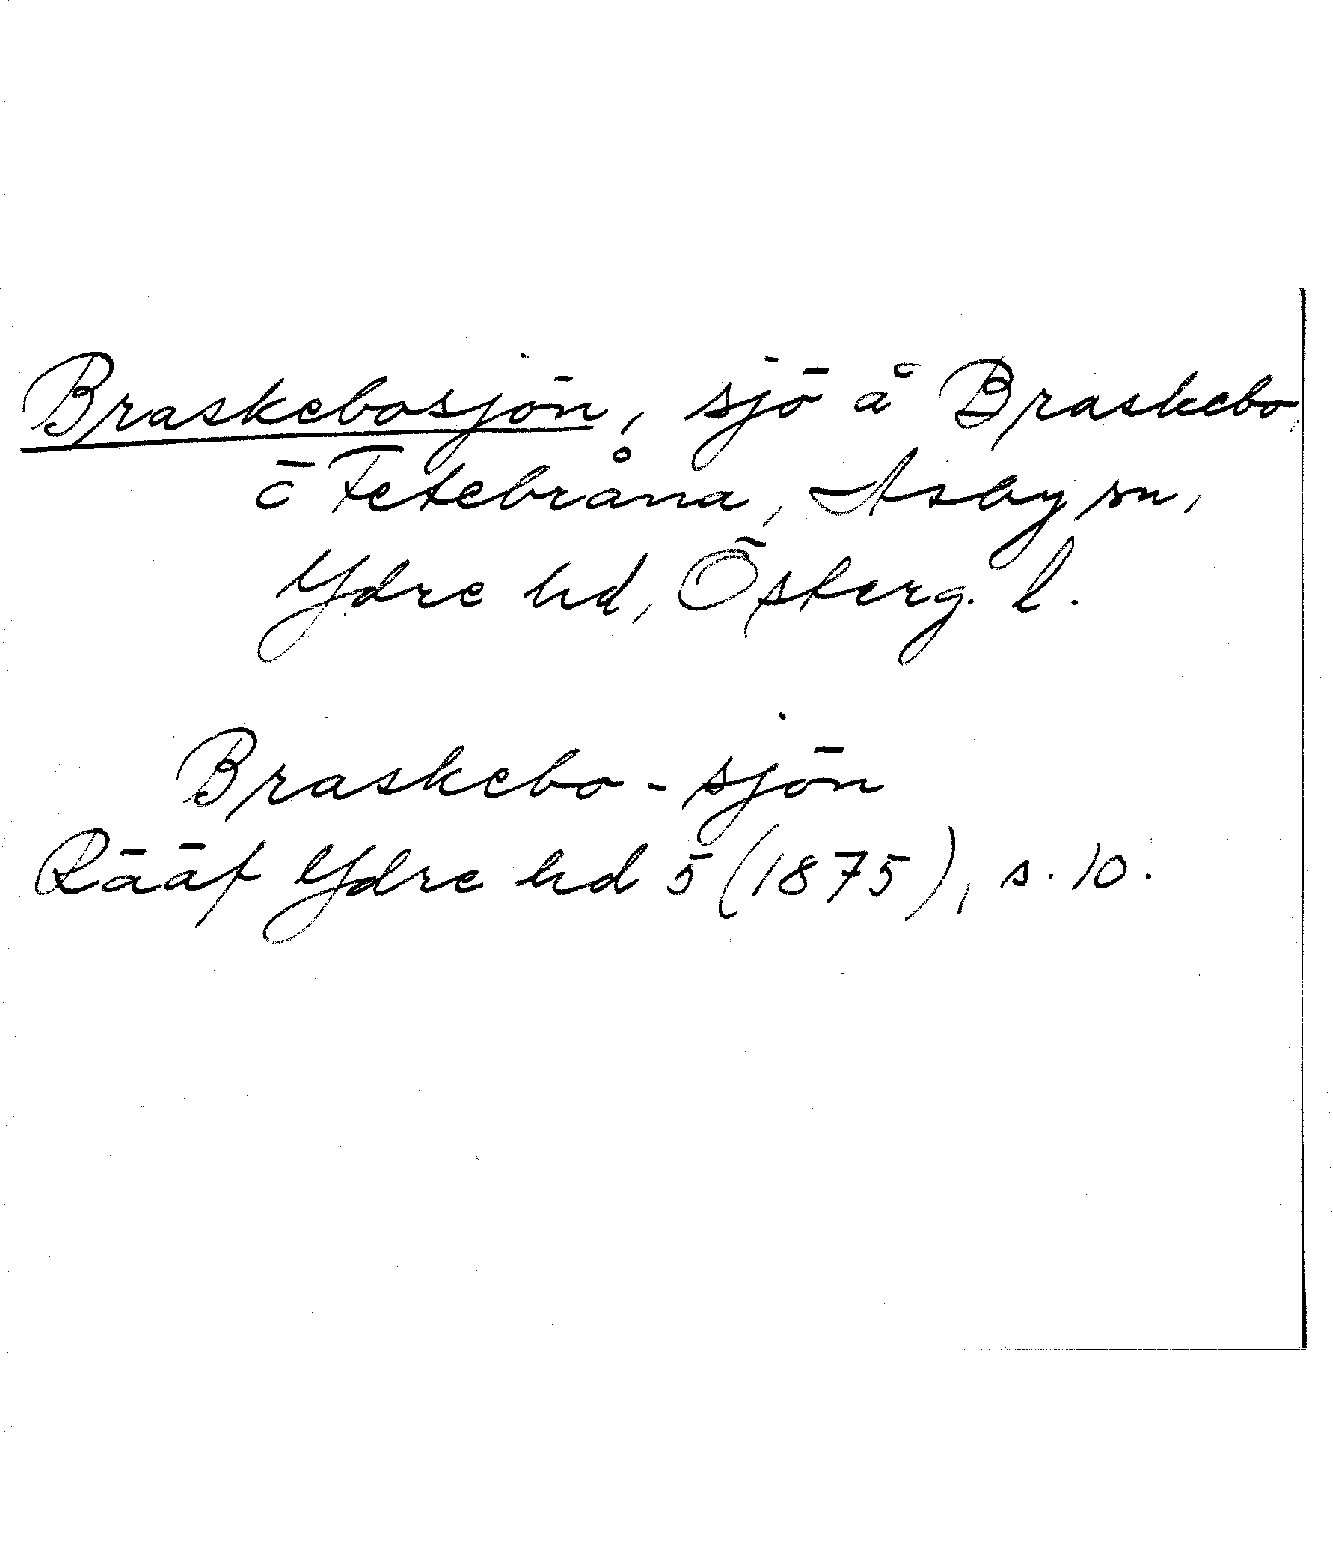 Braskebosjön, sjö å Braskebo,
ö Fetebråna, Asby sn,
Ydre hd, Österg. l.
Braskebo-sjön
Rääf Ydre hd 5 (1875), s. 10.